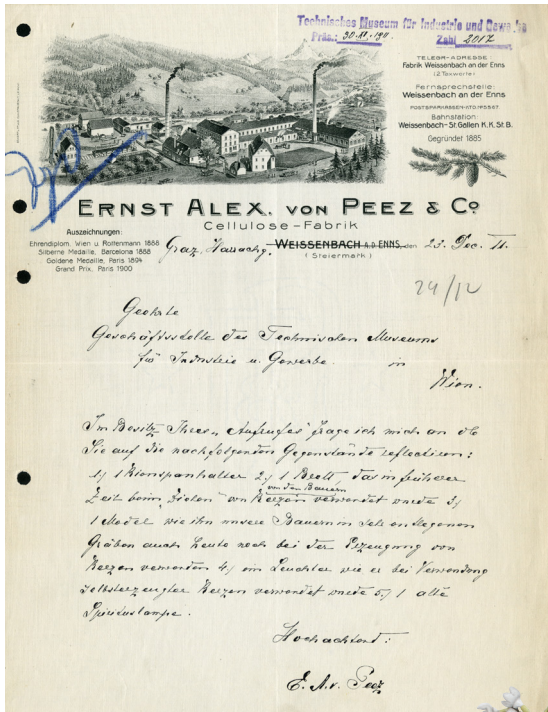 Technisches Museum für Industrie und Gewerbe
Präs.: 30.XI.1911 Zahl 2017
TELEGR-ADRESSE
Fabrik Weissenbach an der Enns
(2 Taxworte)
Fernsprechstelle:
Weissenbach an der Enns
POSTSPARKASSEN-KTO.
Bahnstation:
Weissenbach-St.Gallen K.K.St.B.
Gegründet 1885
ERNST ALEX. VON PEEZ & Co
Cellulose-Fabrik
Auszeichnungen:
Ehrendiplom, Wien u. Rottenmann 1888
Silberne Medaille, Barcelona 1888
Goldene Medaille, Paris 1894
Grand Prix, Paris 1900
Graz, Harrachg. WEISSENBACH A.D. ENNS, den 23. Dec. 11.
(Steiermark)
24/12
Geehrte
Geschäftsstelle des Technischen Museums
für Industrie u. Gewerbe. in
Wien.
Im Besitz Ihres „Aufrufes" frage ich mich an ob
Sie auf die nachfolgenden Gegenstände reflectiren:
1.) 1 Kienspanhalter 2.) 1 Brett, das in früherer
von den Bauern
Zeit beim „Ziehen" von Kerzen verwendet wurde 3.)
1 Model, wie ihn unsere Bauern in
Gräben auch heute noch bei der Erzeugung von
Kerzen verwenden 4.) ein Leuchter wie er bei Verwendung
selbsterzeugter Kerzen verwendet wurde 5.) 1 alte
Spirituslampe.
Hochachtend:
E. A. v. Peez